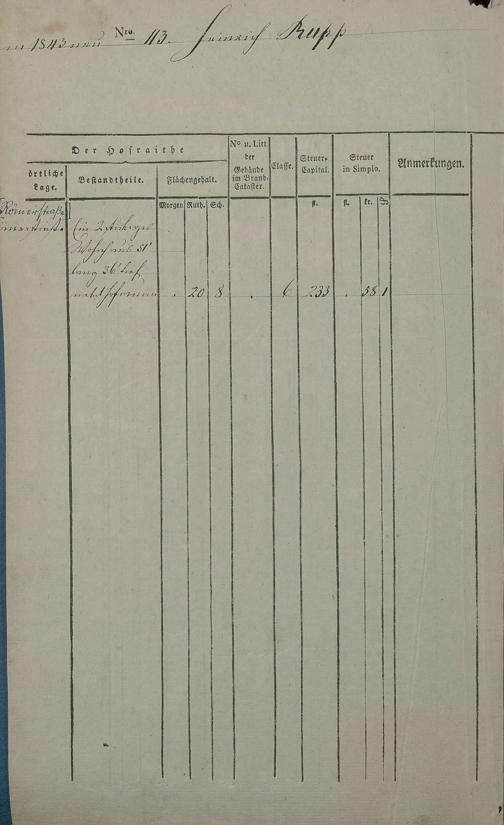 1843 neu Nro. 113. Heinrich Rupp
Der Hofraithe
örtliche Lage.
Bestandtheile.
Flächengehalt.
Morgen Ruth. Sch.
No u. Litt der Gebäude im Brand-Cataster.
Classe.
Steuer-Capital.
fl.
Steuer in Simplo.
fl. kr.
Anmerkungen.
Römerstraße
Ein 2stöckiges
Wohnhaus 51'
lang 36' tief
nebst Hofraum . 20 8 . 6 233 . 58 1